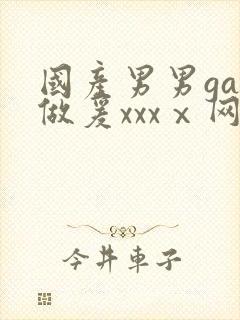 國産男男ga
做爰xxxⅹ网
今井車子